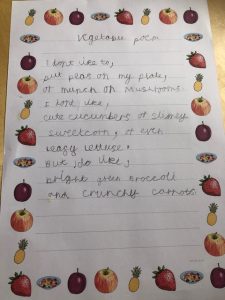 Vegetable poem
I dont like to,
put peas on my plate,
or munch on mushrooms
I dont like,
cute cucumbers or slimey
sweetcorn, or even
leafy lettuce.
But I do like,
bright green broccoli
and crunchy carrots.